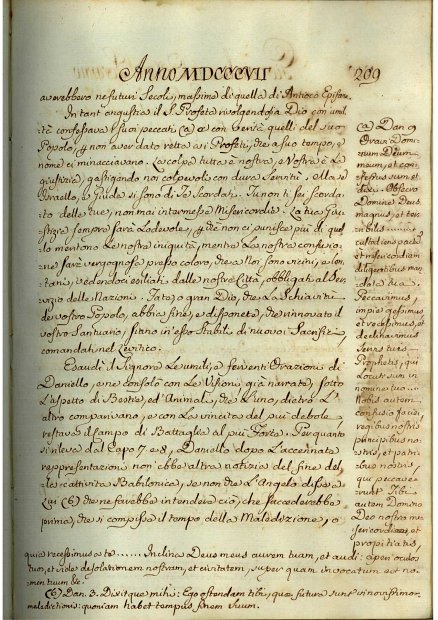 Anno MDCCCVII 209
averebbero ne futuri Secoli, massime di quella di Antioco Epifane.
In tant' angustia il S. Profeta rivolgendosi a Dio con umil
tà confessava i suoi peccati (a) e con verità quelli del suo
Popolo, p non aver dato retta a i Profeti, che a suo tempo, e
nome ci minacciavano. La colpa tutta è nostra, e Vostra è La
giustizia, gastigando noi colpevoli con dura servitù. Ella se
Israello, e Giuda si sono di Te scordati. Tu non ti sei scord
ito delle tue, non mai intermesse Misericordie. La tua Giu
stizia sempre sarà Lodevole, p che non ci punisce più di quel
lo meritono Le nostre iniquità, mentre La nostra confusio
ne sarà vergognosa presso coloro, che a Noi sono vicini, e lon
tani, vedendoci esiliati dalle nostre Città, obbligati al Ser
vizio delle Nazioni. Fate, o gran Dio, che La Schiavitù
del vostro Popolo, abbia fine, e disponete, che rinnovato il
vostro Santuario, siano in esso stabiliti di nuovo i Sacrifizi
comandati nel Levitico.
Esaudì il Signore Le umili, e ferventi Orazioni di
Daniello, e ne consolò con Le Visioni già narrate, sotto
L'aspetto di Bestie, ed' Animali, che L'uno, dietro L'
altro comparivano, e con La vincita del più debole
restava il Campo di Battaglia al più Forte. Per quanto
si rileva dal Capo 7 e 8, Daniello dopo L'accennata
rappresentazioni non ebbe altra notizia del fine del
la cattività Babilonica, se non che L'Angelo disse a
Lui (b) che ne farebbe intendere ciò, che succederebbe
prima, che si compisse il tempo della Maledizione, o
(a) Dan 9
Oravi Domi
num Deum
meum, et con
fessus sum et
dixi. Obsecro
Domine Deus
magnus, et terr
ibilis
custodiens pactũ
et misericordiam
diligentibus man
data tua
Peccavimus,
impie gessimus
et recessimus, et
declinavimus
Servis tuis
Prophetis, qui
Locuti sunt in
nomine tuo
Nobis autem
confusio faciei,
regibus nostris
principibus nos
tris, et patri
bus nostris,
qui peccave
runt Tibi
autem Domino
Deo nostro mi
sericordia, et
propitiatis,
quia recessimus a te ...... Inclina Deus meus aurem tuam, et audi: aperi oculos
tuos, et vide desolationem nostram, et civitatem, super quam invocatum est no
men tuum &c
(b) Dan. 8. Dixitque mihi: Ego ostendam tibi, quæ futura sunt in novissimo
maledictionis: quoniam habet tempus finem suum.